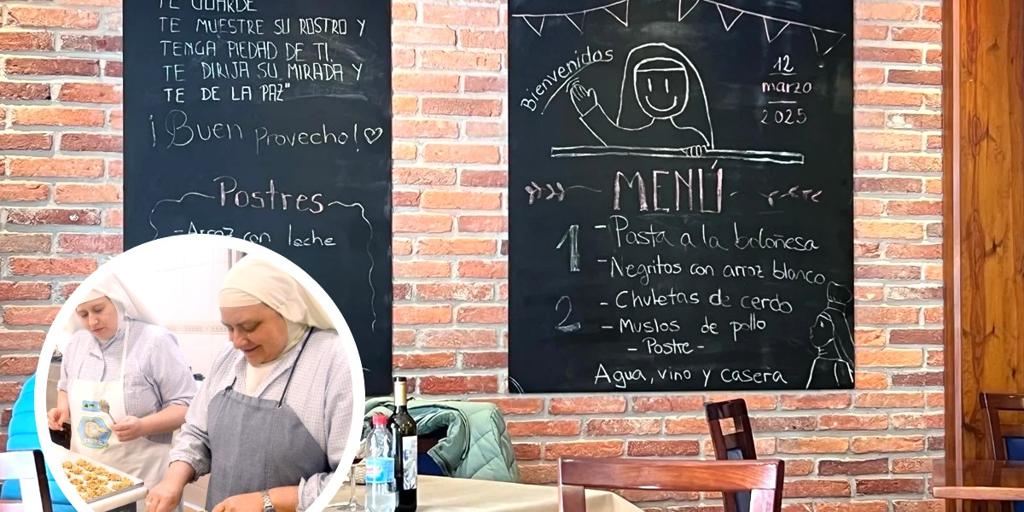 TE GUARDE
TE MUESTRE SU ROSTRO Y
TENGA PIEDAD DE TI.
TE DIRIJA SU MIRADA Y
TE DE LA PAZ"
¡Buen Provecho!
Postres
- Arroz con leche
Bienvenidos
12
marzo
2025
MENÚ
1 - Pasta a la boloñesa
- Negritos con arroz blanco
2 - Chuletas de cerdo
- Muslos de pollo
- Postre -
Agua, vino y casera